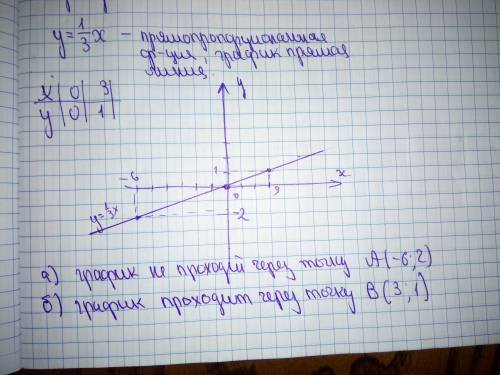 y = 1/3 x – прямопропорциональная
ф-ция, график прямая
линия.
x | 0 | 3
y | 0 | 1
y
-6
1
x
0
3
y=1/3x
-2
а) график не проходит через точку A(-6; 2)
б) график проходит через точку B(3; 1)